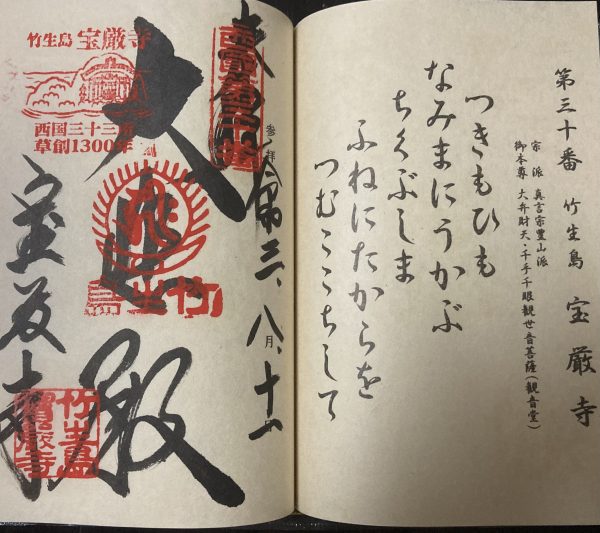 第三十番 竹生島 宝厳寺
宗派 真言宗豊山派
御本尊 大弁財天・千手千眼観世音菩薩(観音堂)
つきもひも
なみまにうかぶ
ちくぶしま
ふねにたからを
つむここちして
奉拝
参拝 令和三、八月、十一
西國第三十番
大悲殿
宝厳寺
竹生島 宝厳寺
西国三十三所
草創1300年
竹生島
竹生島
寶嚴寺